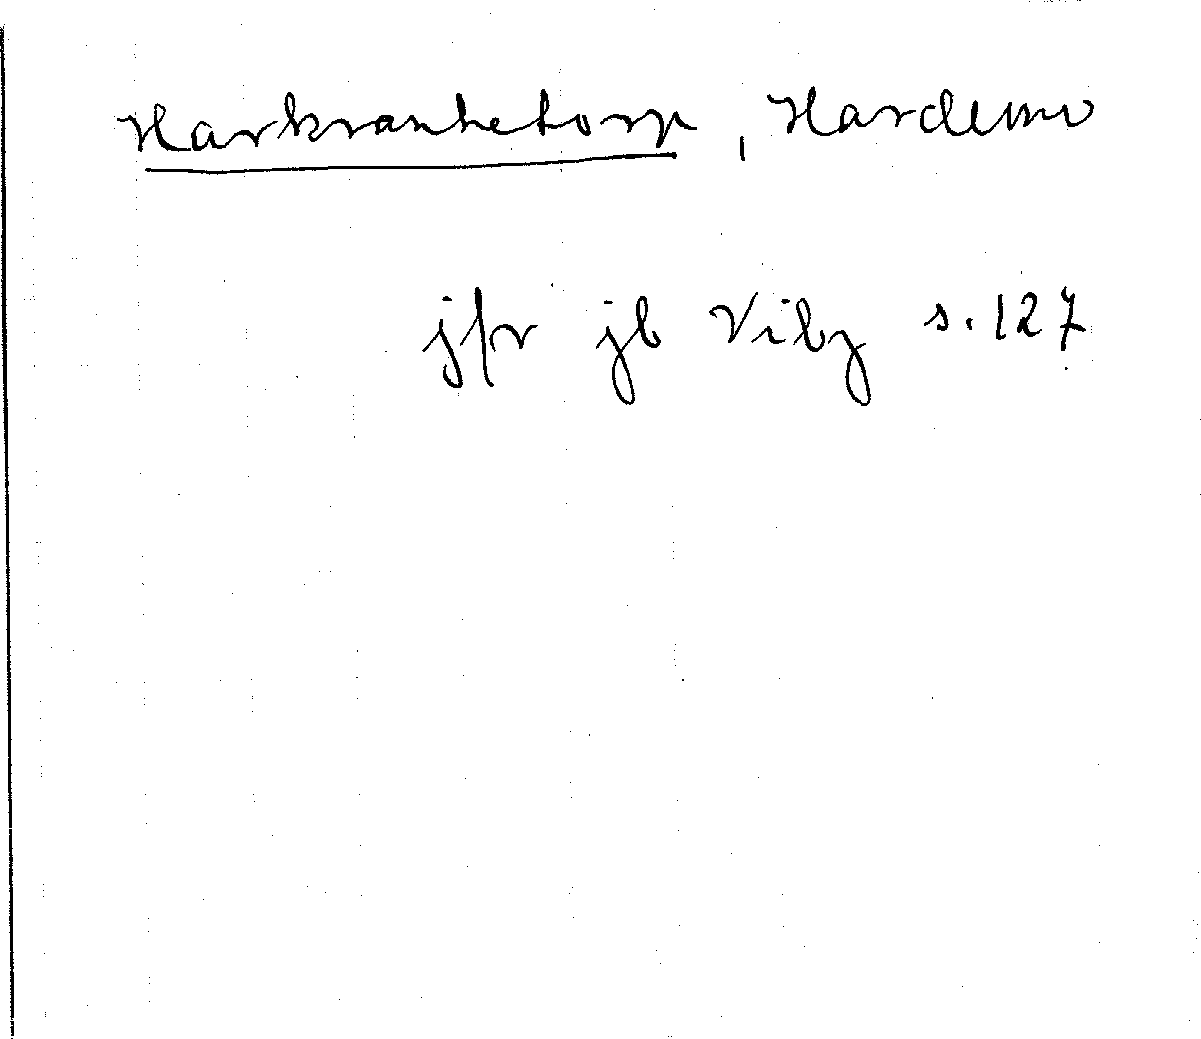 Harkranketorp, Hardemo
jfr jb Viby s. 127